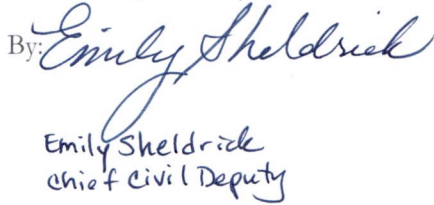 By: Emily Sheldrick
Emily Sheldrick
Chief Civil Deputy